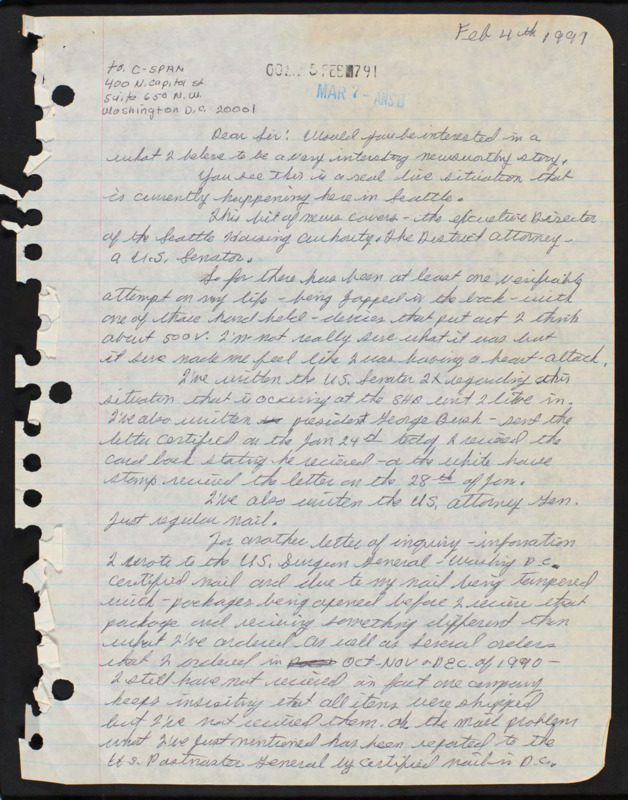 Feb 4th 1991
to. C-SPAN
400 N. Capital st
Suite 650 N.W.
Washington D.C. 20001
5 FEB 91
MAR 7 - ANS'D
Dear Sir: Would you be interested in a
what I beleve to be a very intersting newsworthy story.
You see this is a real live situation that
is currently happening here in Seattle.
This bit of news covers - the executive Director
of the Seattle Housing authority. The District attorney -
a U.S. Senator.
So far there has been at least one verifiable
attempt on my life - being zapped in the back - with
one of those hand held - devices that put out I think
about 500V. I'm not really sure what it was but
it sure made me feel like I was having a heart-attack.
I've written the U.S. Senator 2X regarding this
situation that is occurring at the SHA unit I live in.
I've also written president George Bush - send the
letter certified on the Jan 24th today I recieved the
card back stating he recieved - or the white house
stamp recived the letter on the 28th of Jan.
I've also written the U.S. attorney Gen.
Just regular mail.
For another letter of inquiry - information
I wrote to the U.S. Surgeon General - Washing D.C.
certified mail and due to my mail being tampered
with - packages being opened before I recieve that
package and recieving something different than
what I've ordered. As well as several orders
that I ordered in OCT-NOV & DEC. of 1990 -
I still have not recieved in fact one company
keeps insisting that all items were shipped
but I've not recieved them. Oh the mail problem
what I've just mentioned has been reported to the
U.S. Postmaster General by certified mail in D.C.